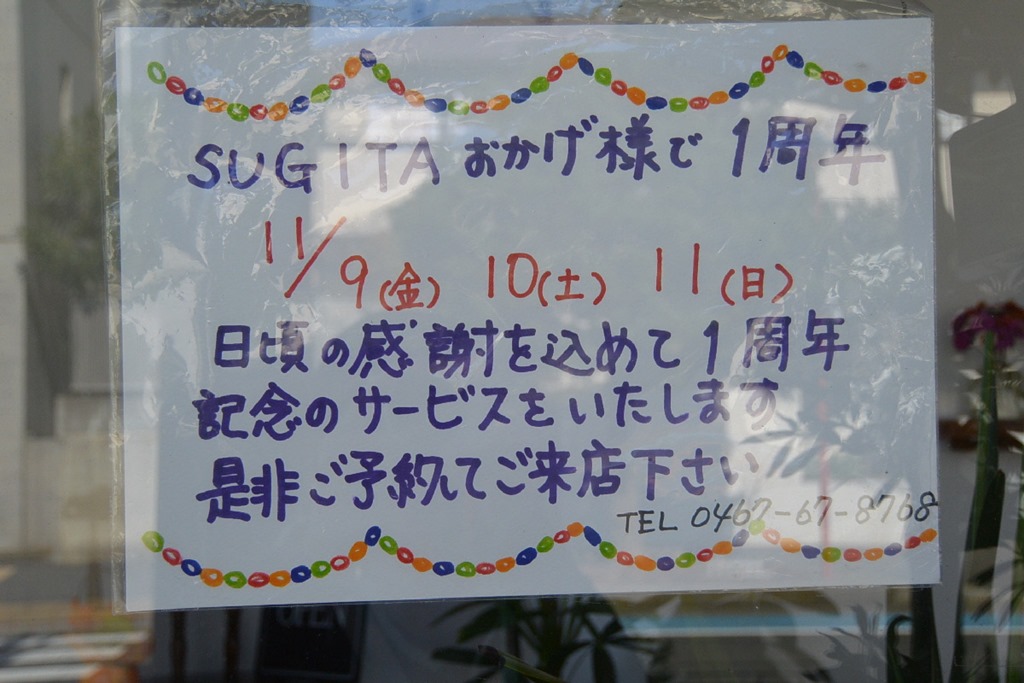 SUGITA おかげ様で 1周年
11/9(金) 10(土) 11(日)
日頃の感謝を込めて1周年
記念のサービスをいたします
是非ご予約してご来店下さい
TEL 0467-67-8768